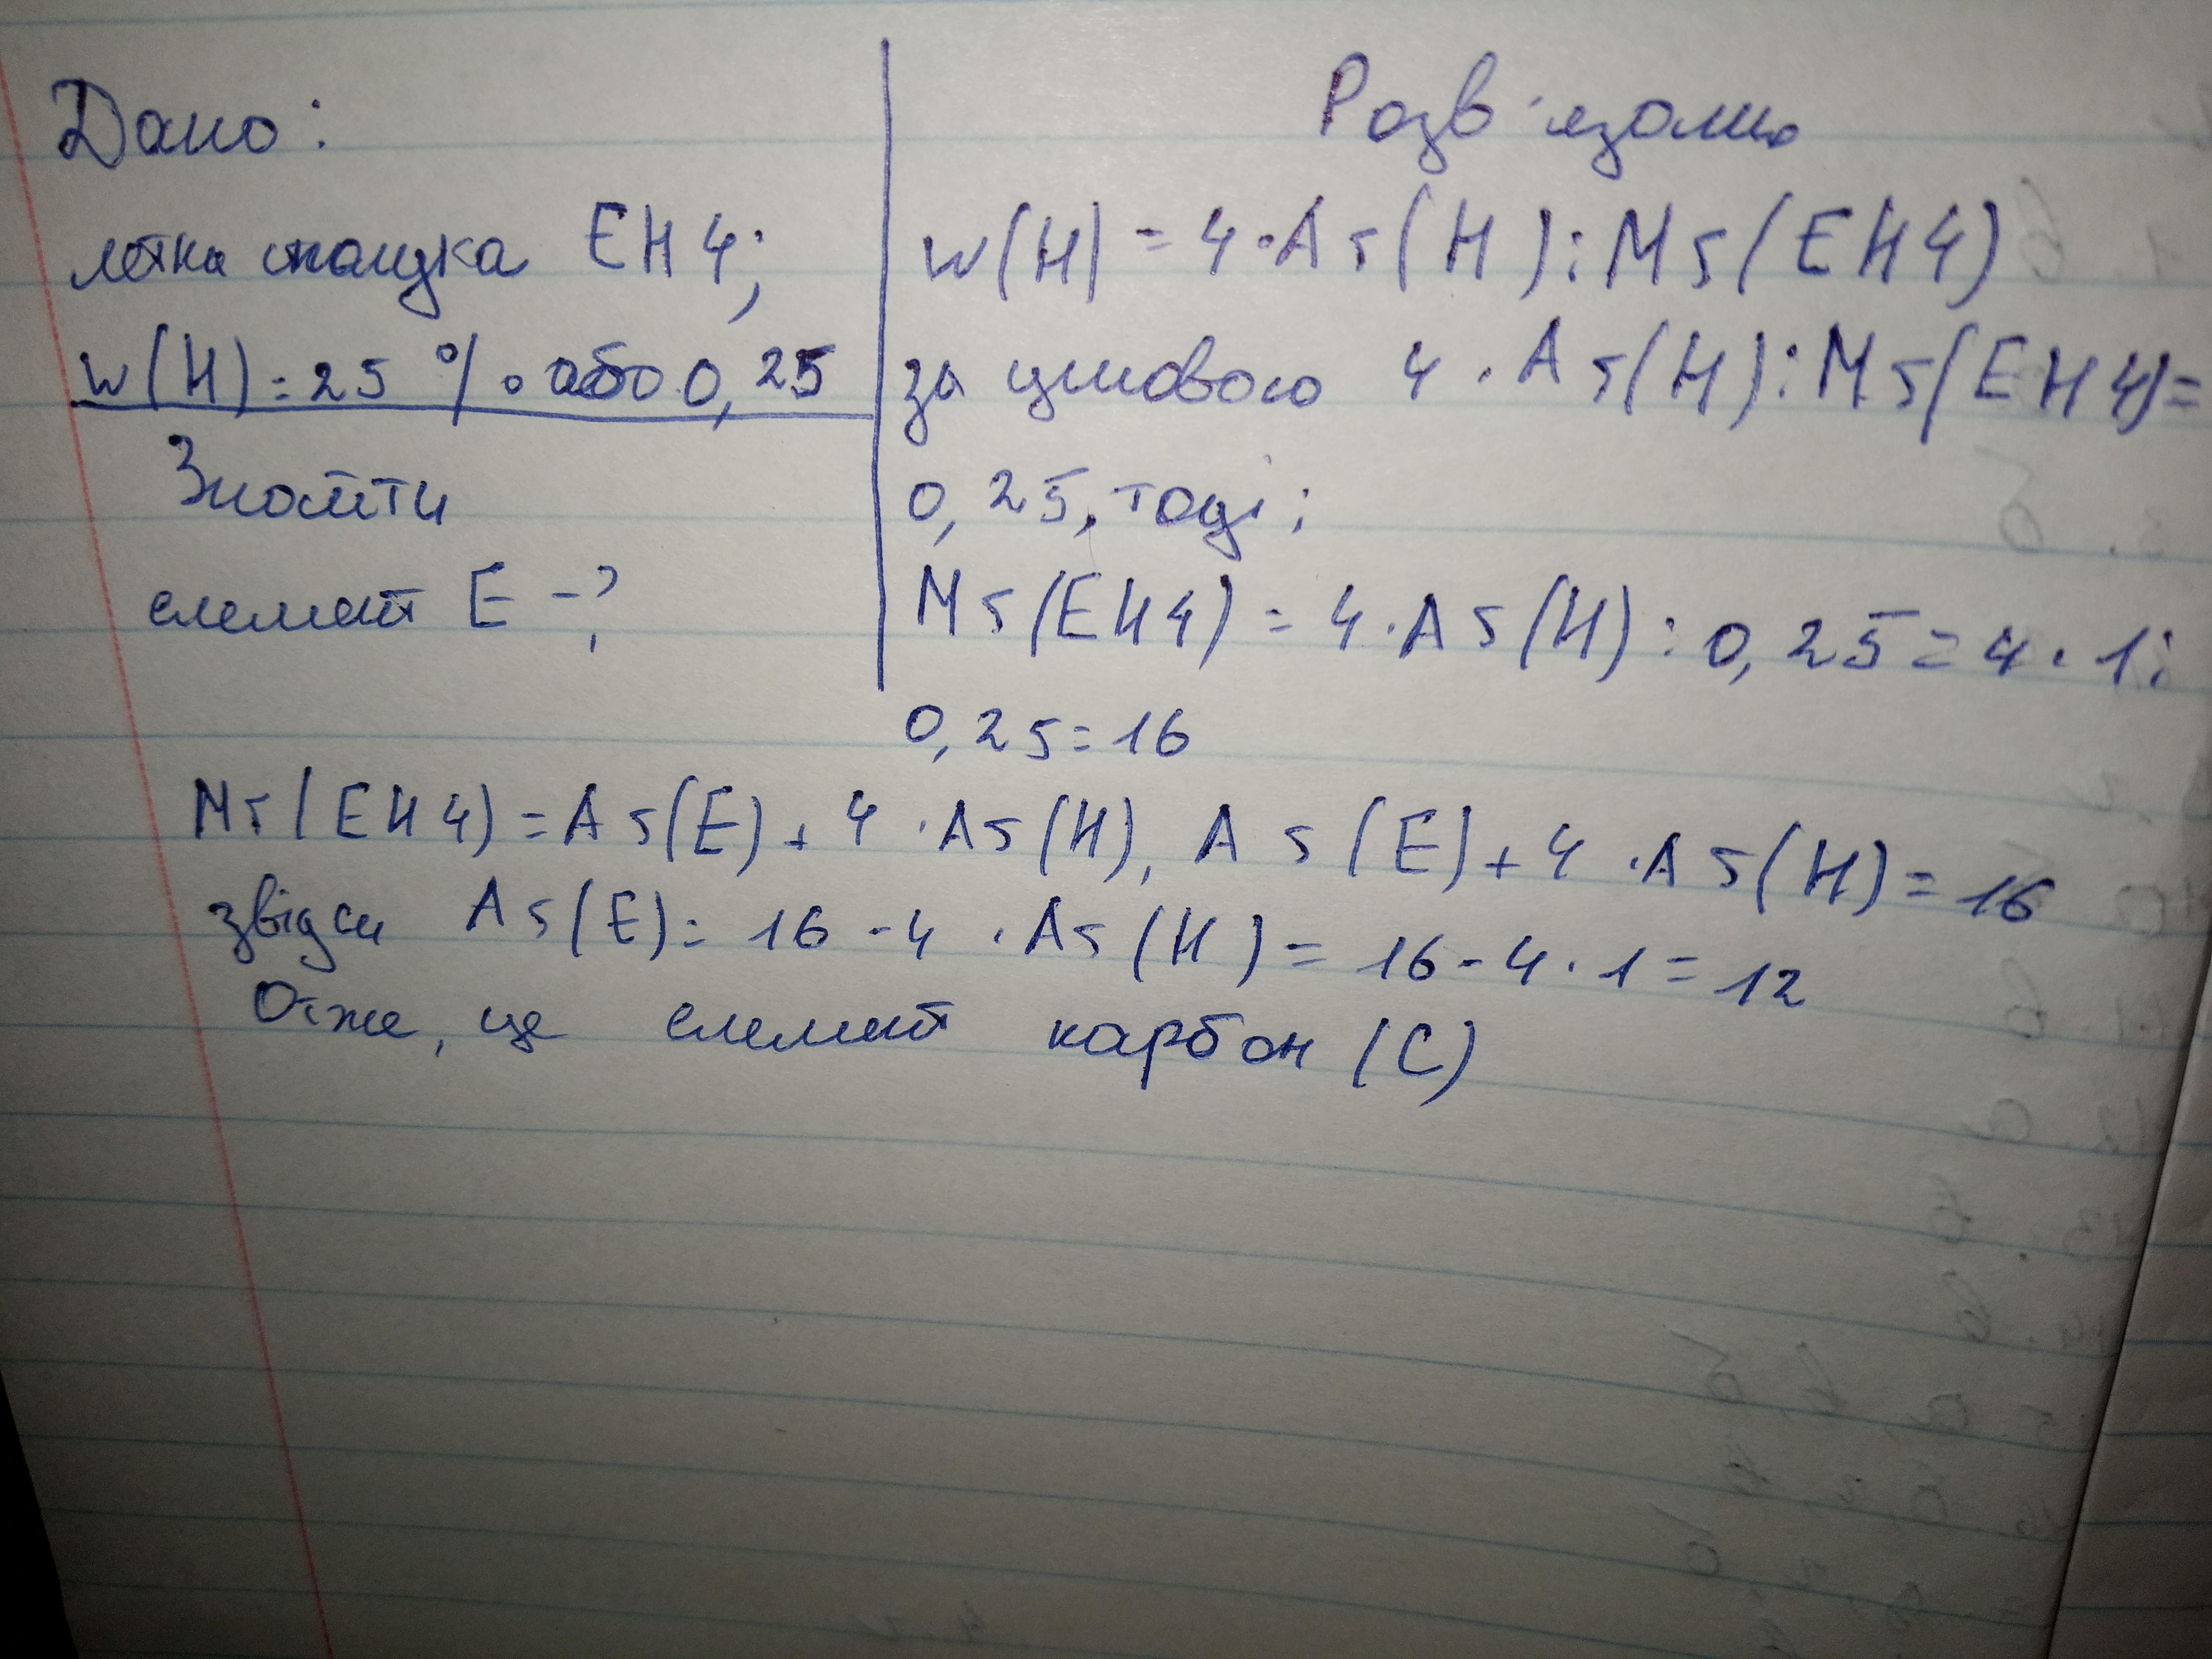 Дано:
летка сполука EH4;
w(H)=25 % або 0,25
Знайти
елемент E -?
Розв'язання
w(H) = 4·Ar(H):Mr(EH4)
за умовою 4·Ar(H):Mr(EH4)=
0,25, тоді:
Mr(EH4) = 4·Ar(H):0,25=4·1:
0,25=16
Mr(EH4)=Ar(E)+4·Ar(H), Ar(E)+4·Ar(H)=16
звідси Ar(E)= 16-4·Ar(H)= 16-4·1=12
Отже, це елемент карбон (C)